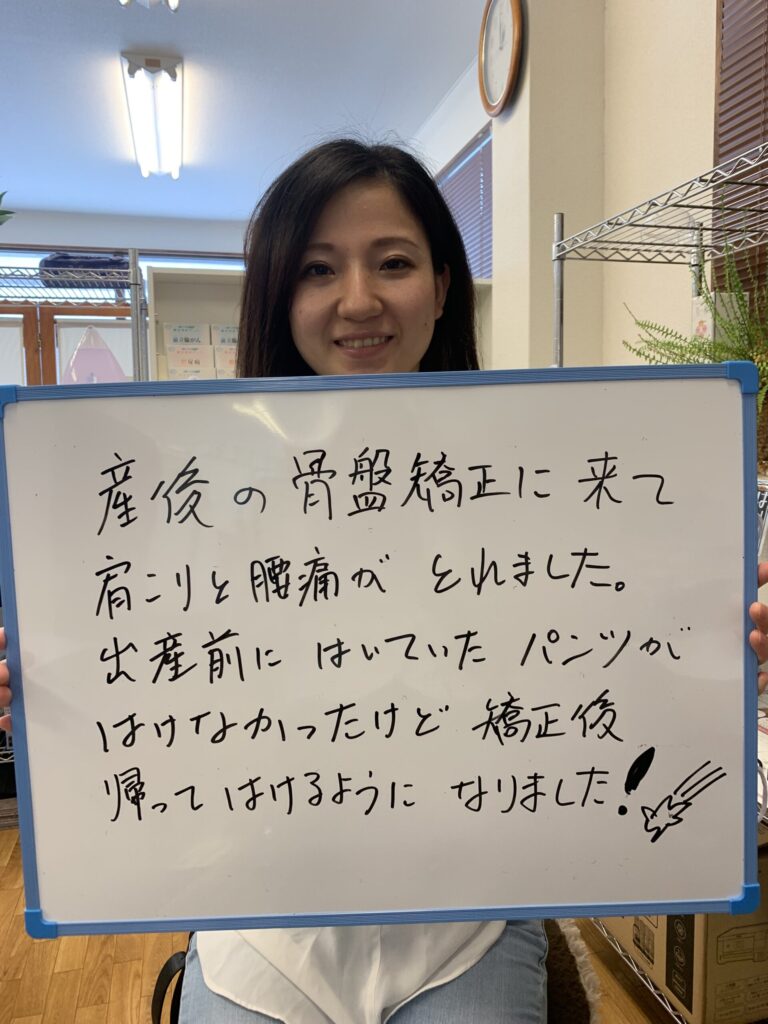 産後の骨盤矯正に来て
肩こりと腰痛がとれました。
出産前にはいていたパンツが
はけなかったけど矯正後
帰ってはけるようになりました!